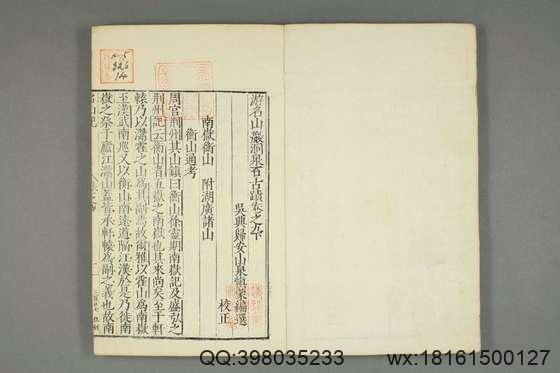 游名山巖洞泉石古蹟卷之九下
吳興歸安山泉慎蒙編選
校正
南嶽衡山　附湖廣諸山
衡山通考
周官荆州其山鎮曰衡山徐靈期南嶽記及盛弘之
荆州記云衡山者五嶽之南嶽也其來尚矣至于軒
轅乃以灊霍之山爲其副焉故爾雅以霍山爲南嶽
至漢武南巡又以衡山南遠道隔江漢於是乃徙南
嶽之祭于廬江灊山蓋皆承軒轅爲副之義也故南
名山記
QQ:398035233
wx:18161500127